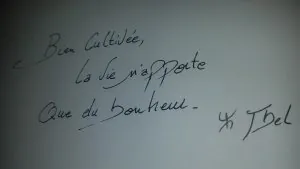 « Bien Cultivée,
la vie n'apporte
Que du bonheur.
JDel